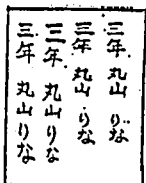 三年 丸山 りな
三年 丸山 りな
三年 丸山 りな
三年 丸山 りな